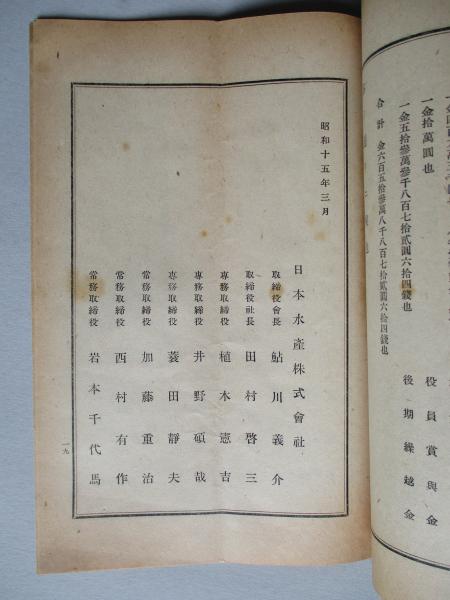 一金拾萬圓也
役員賞與金
一金五拾參萬參千八百七拾貳圓六拾四錢也
後期繰越金
合計 金六百五拾參萬八千八百七拾貳圓六拾四錢也
昭和十五年三月
日本水產株式會社
取締役會長 鮎川義介
取締役社長 田村啓三
專務取締役 植木憲吉
專務取締役 井野碩哉
專務取締役 蓑田靜夫
常務取締役 加藤重治
常務取締役 西村有作
常務取締役 岩本千代馬
一九